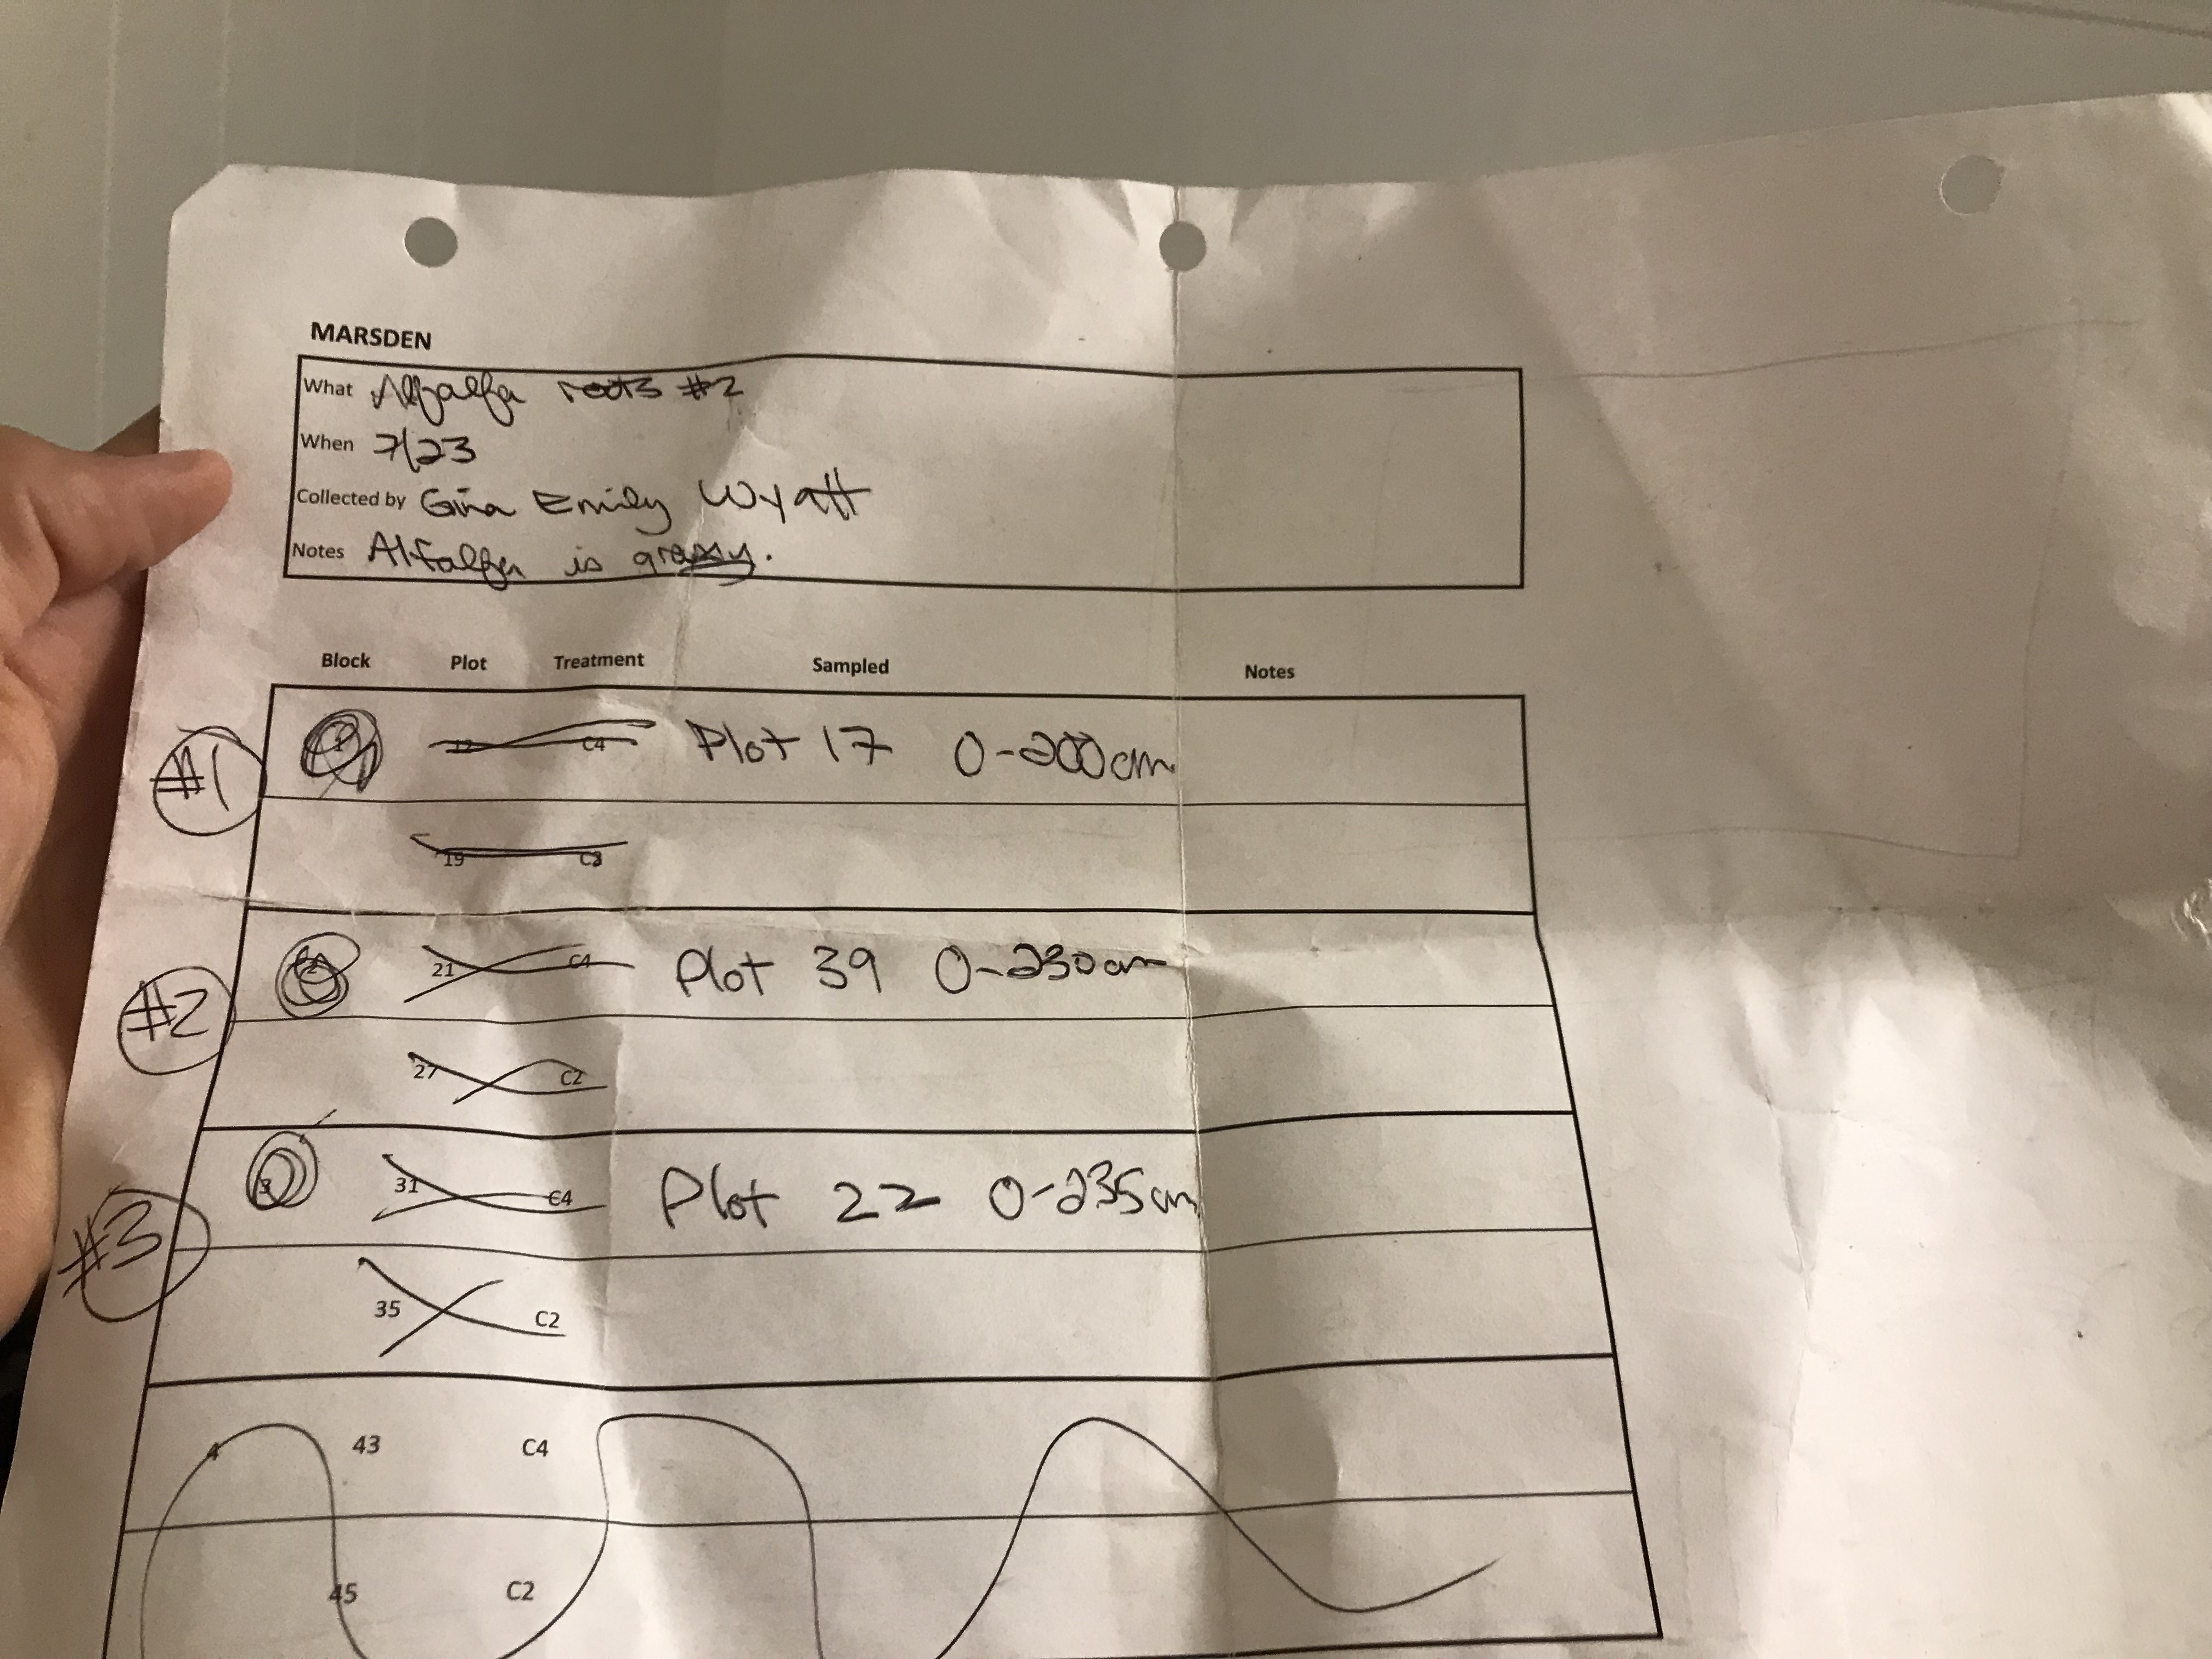 MARSDEN
What Alfalfa roots #2
When 7/23
Collected by Gina Emily Wyatt
Notes Alfalfa is grassy.
Block Plot Treatment Sampled Notes
#1 1 12 C4 Plot 17 0-200cm
19 C2
#2 2 21 C4 Plot 39 0-230cm
27 C2
#3 3 31 C4 Plot 22 0-235cm
35 C2
4 43 C4
45 C2